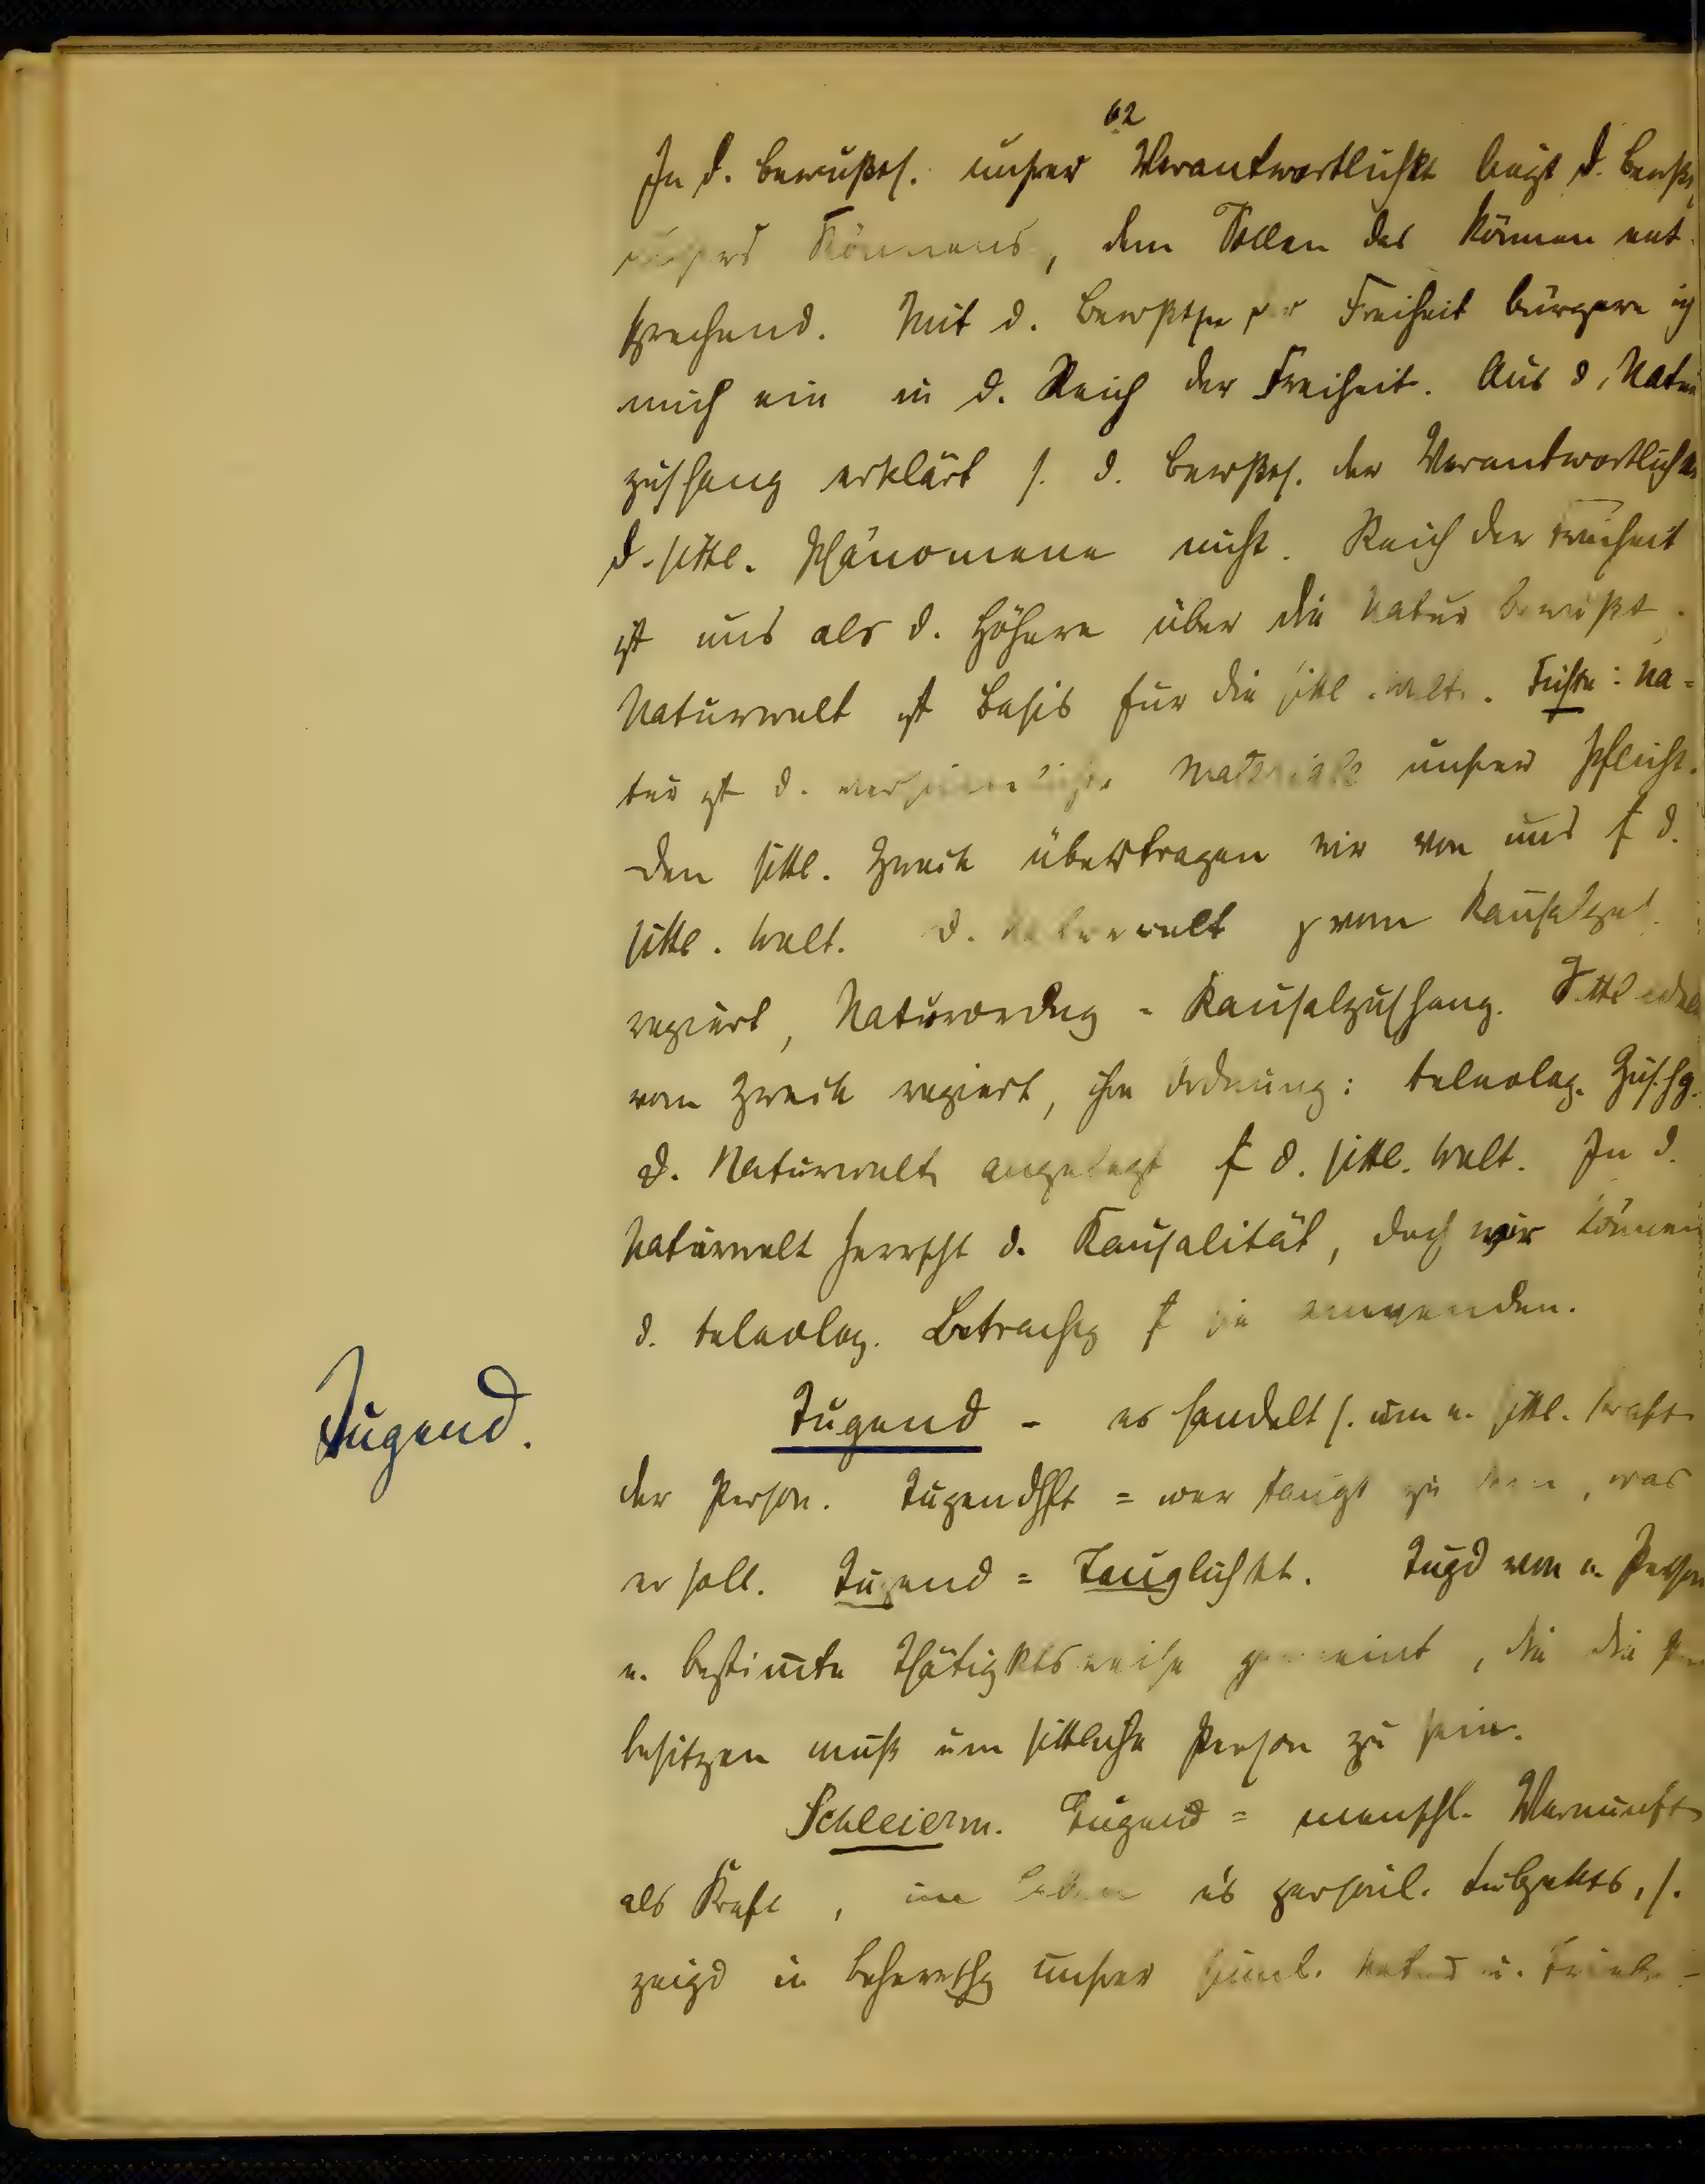 62
In d. bewußts. unsrer Verantwortlichkt liegt d. bewßts
unsers Könnens, dem Sollen das Können ent-
sprechend. Mit d. Bewßtse der Freiheit bürgere ich
mich ein in d. Reich der Freiheit. Aus d. Natur
zushang erklärt s. d. bewßts. der Verantwortlichk
d. sittl. Phänomene nicht. Reich der Freiheit
ist uns als d. Höhere über die Natur bewußt.
Naturwelt ist Basis für die sittl. Welt. Fichte: Na=
tur ist d. versinnlichte Material unsrer Pflicht.
Den sittl. Zweck übertragen wir von uns f d.
sittl. Welt. d. Naturwelt vom Kausalges.
regiert, Naturordng = Kausalzushang. Sittl
vom Zweck regiert, ihre Ordnung: teleolog. Zus.hg.
d. Naturwelt angelegt f d. sittl. Welt. In d.
Naturwelt herrscht d. Kausalität, doch wir können
d. teleolog. Betrachtg f sie anwenden.
Tugend.
Tugend - es handelt s. um e. sittl. Kraft
der Person. Tugendhft = wer taugt zu dem, was
er soll. Tugend = Tauglichkt. Tugd von e. Person
e. bestimte Thätigktsweise gemeint, die die
besitzen muß um sittliche Person zu sein.
Schleierm. Tugend = menschl. Vernunft
als Kraft, im Leben e's persönl. Subjekts, s.
zeigd in Beherrschg unsrer sinnl. Natur u. Triebe -